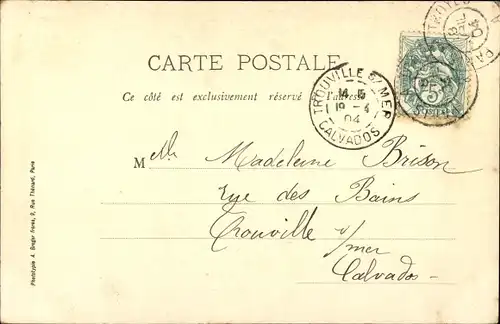 CARTE POSTALE
Ce côté est exclusivement réservé à l'adresse
TROUVILLE S/ MER
CALVADOS
04
Mlle Madeleine Brison
Rue des Bains
Trouville s/mer
Calvados
Phototypie A. Breger Frères, 9, Rue Thénard, Paris